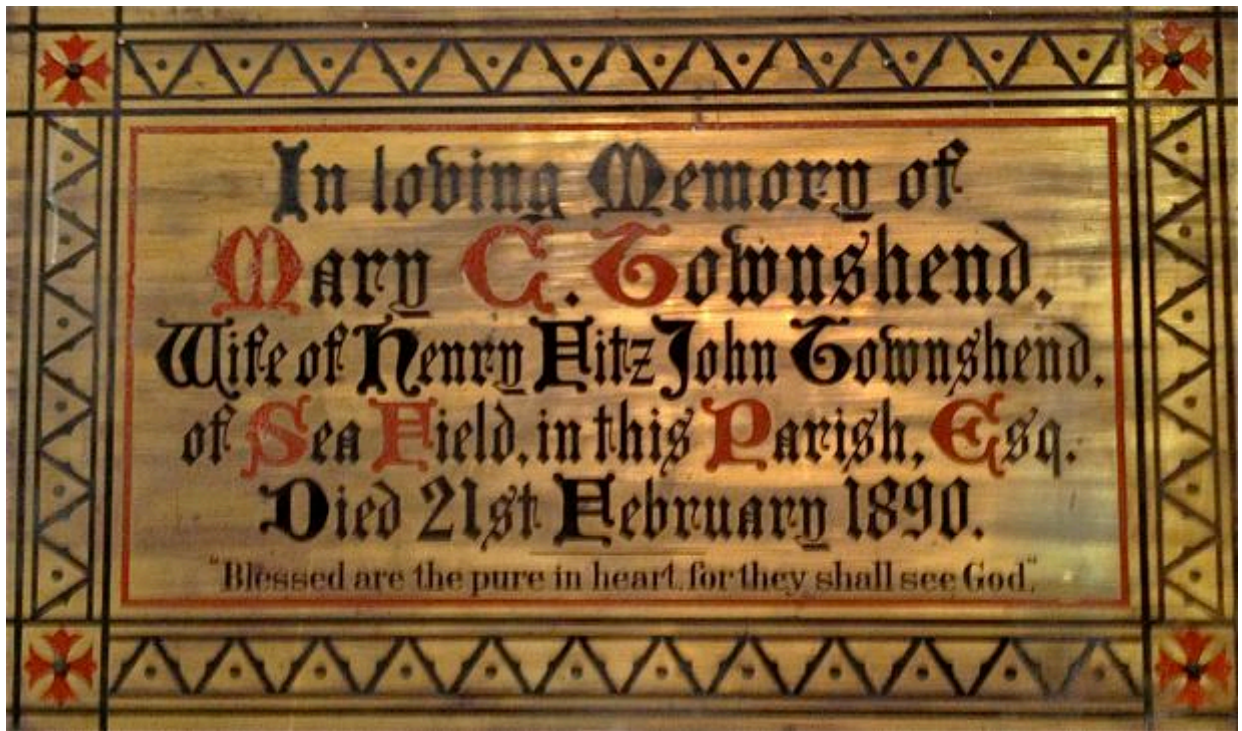 In loving Memory of
Mary C. Townshend,
Wife of Henry Fitz John Townshend,
of Sea Field, in this Parish, Esq.
Died 21st February 1890.
"Blessed are the pure in heart, for they shall see God."